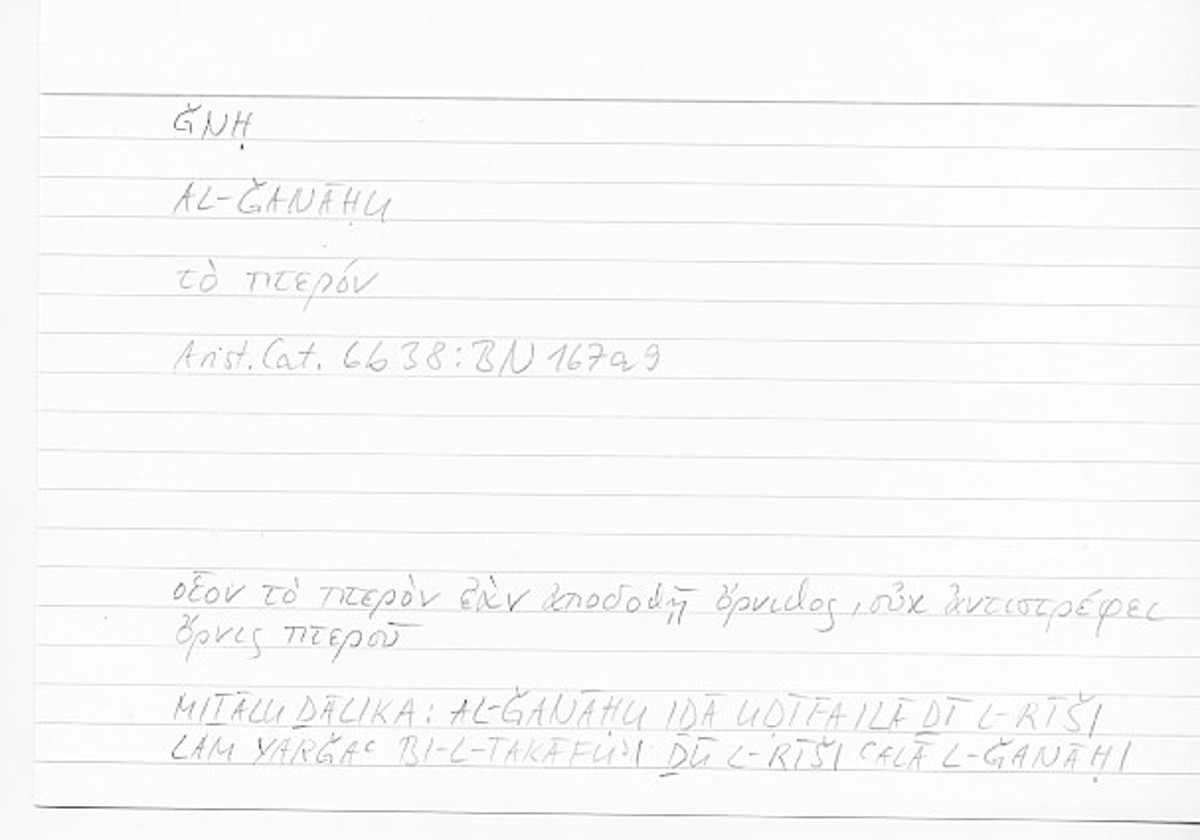 ǦNḤ
AL-ǦANĀḤU
τὸ πτερόν
Arist. Cat. 6b38: BN 167a9
οἷον τὸ πτερὸν ἐὰν ἀποδοθῇ ὄρνιθος, οὐκ ἀντιστρέφει
ὄρνις πτεροῦ
MIṮĀLU ḎĀLIKA: AL-ǦANĀḤU IḎĀ UḌĪFA ILĀ ḎĪ L-RĪŠI
LAM YARǦAʿ BI-L-TAKĀFUʾI ḎŪ L-RĪŠI ʿALĀ L-ǦANĀḤI